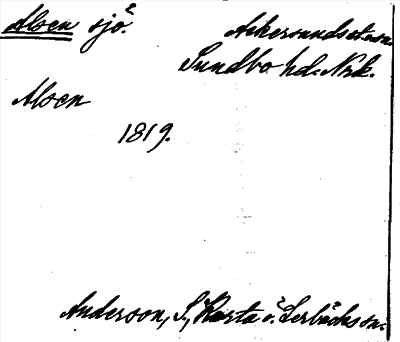 Alsen sjö.
Askersunds et. sn.
Sundbo hd. Nrk.
Alsen
1819.
Anderson, S, Karta ö. Lerbäcks sn.